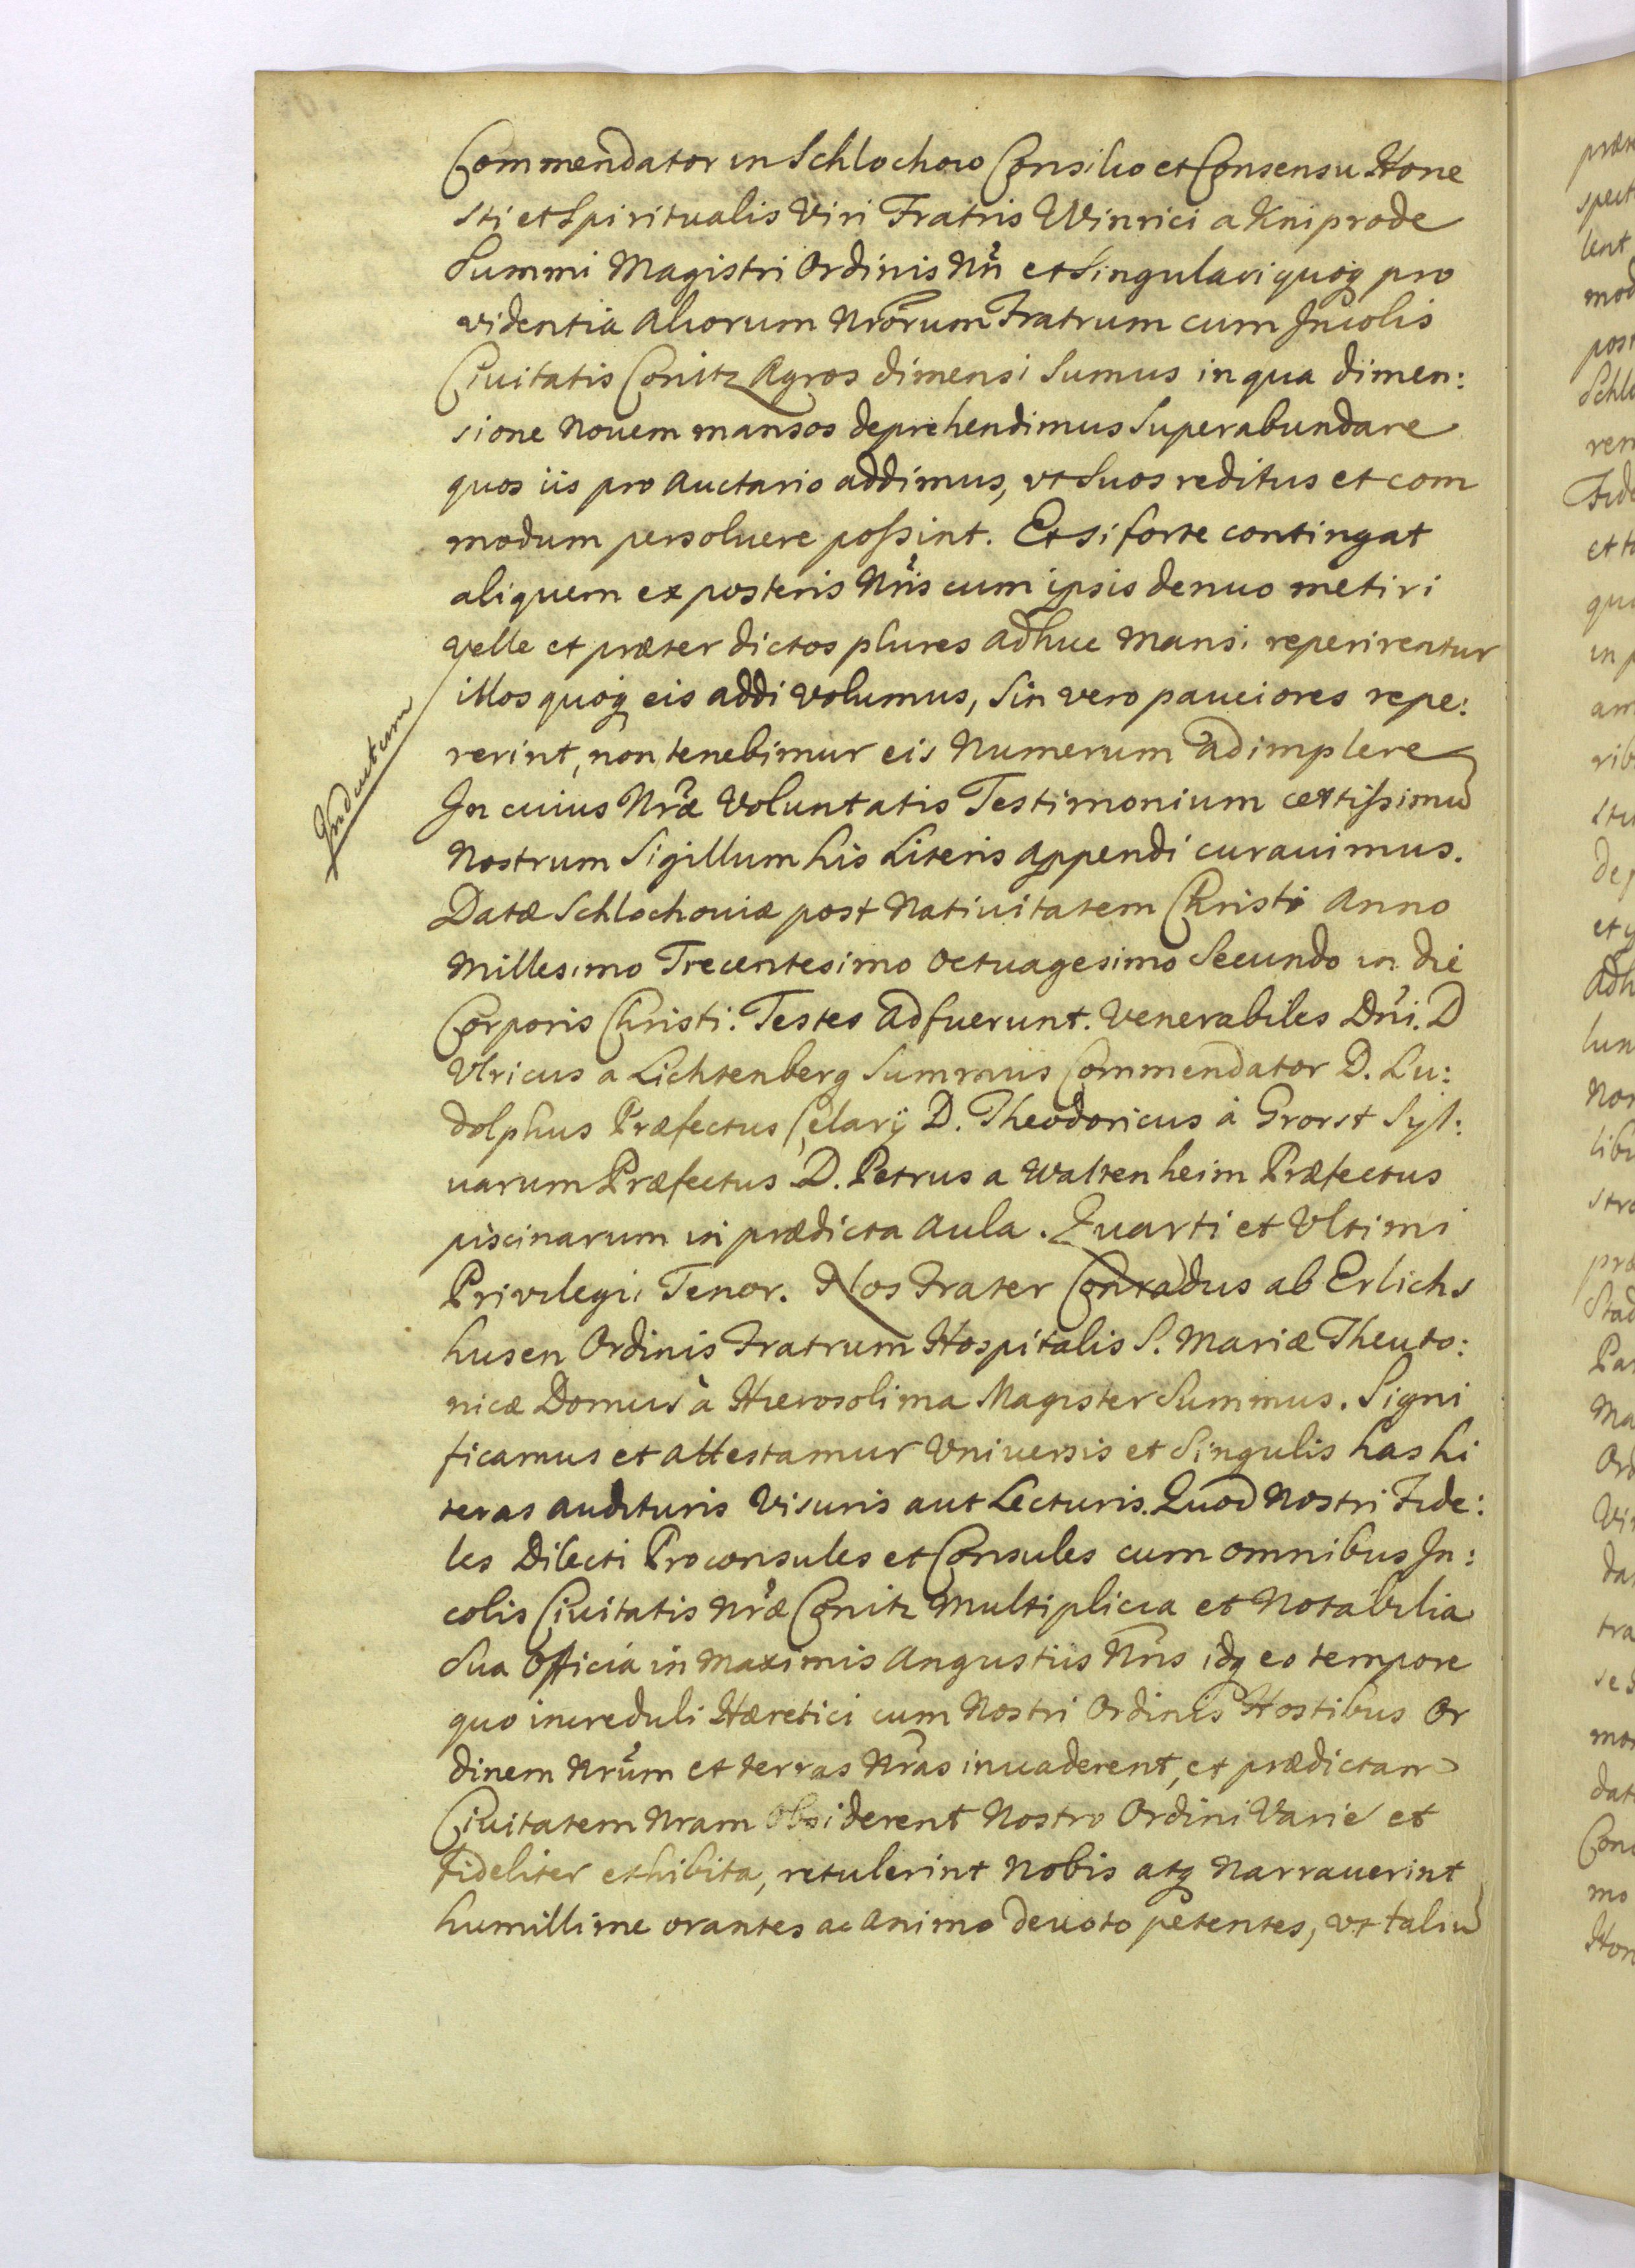 Commendator in Schlochow Consilio et Consensu Hone
sti et Spiritualis Viri Fratris Winrici a Kniprode
Summi Magistri Ordinis Nri et Singulari quoq pro
videntia Aliorum Nrorum Fratrum cum Incolis
Ciuitatis Conitz Agros dimensi Sumus in qua dimen:
sione Nouem mansos deprehendimus Superabundare
quos iis pro Auctario addimus, vt Suos reditus et com
modum persoluere possint. Et si forte contingat
aliquem ex posteris Nris cum ipsis denuo metiri
velle et præter dictos plures adhuc Mansi reperirentur
illos quoq eis addi volumus, Sin vero pauciores repe:
rerint, non tenebimur eis Numerum adimplere
Indultum
In cuius Nræ Voluntatis Testimonium certissimu
Nostrum Sigillum his Literis appendi curauimus.
Datæ Schlochouiæ post Natiuitatem Christi Anno
Millesimo Trecentesimo Octuagesimo Secundo in die
Corporis Christi. Testes adfuerunt. Venerabiles Dni. D
Vlricus a Lichtenberg Summus Commendator D. Lu:
dolphus Præfectus Celarij D. Theodoricus à Grorst Syl:
uarum Præfectus D. Petrus a Waltenheim Præfectus
piscinarum in prædicta Aula. Quarti et Vltimi
Privilegii Tenor. Nos Frater Conradus ab Erlichs
husen Ordinis Fratrum Hospitalis S. Mariæ Theuto:
nicæ Domus à Hierosolima Magister Summus. Signi
ficamus et attestamur Vniuersis et Singulis has Li
teras audituris Visuris aut Lecturis. Quod Nostri Fide:
les Dilecti Proconsules et Consules cum omnibus In:
colis Ciuitatis Nræ Conitz Multiplicia et Notabilia
Sua Officia in Maximis Angustiis Nris idq eo tempore
quo increduli Hæretici cum Nostri Ordinis Hostibus Or
dinem Nrum et terras Nras inuaderent, et prædictam
Ciuitatem Nram Obsiderent Nostro Ordini Varie et
fideliter exhibita, retulerint Nobis atq Narrauerint
humillime orantes ac Animo deuoto petentes, vt taliu